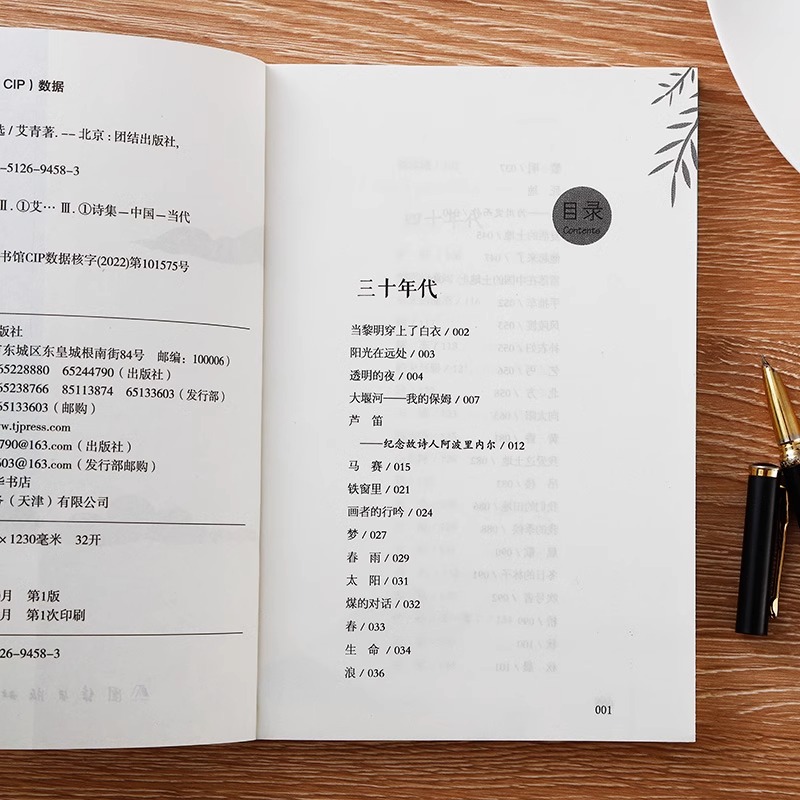 CIP）数据
选 / 艾青著. -- 北京 : 团结出版社,
-5126-9458-3
Ⅱ. ①艾… Ⅲ. ①诗集－中国－当代
书馆CIP数据核字(2022)第101575号
版社
东城区东皇城根南街84号 邮编：100006)
65228880 65244790（出版社）
65238766 85113874 65133603（发行部）
65133603（邮购）
www.tjpress.com
790@163.com（出版社）
603@163.com（发行部邮购）
华书店
（天津）有限公司
×1230毫米 32开
月 第1版
月 第1次印刷
26-9458-3
目录
Contents
三十年代
当黎明穿上了白衣 / 002
阳光在远处 / 003
透明的夜 / 004
大堰河——我的保姆 / 007
芦 笛
——纪念故诗人阿波里内尔 / 012
马 赛 / 015
铁窗里 / 021
画者的行吟 / 024
梦 / 027
春 雨 / 029
太 阳 / 031
煤的对话 / 032
春 / 033
生 命 / 034
浪 / 036
001